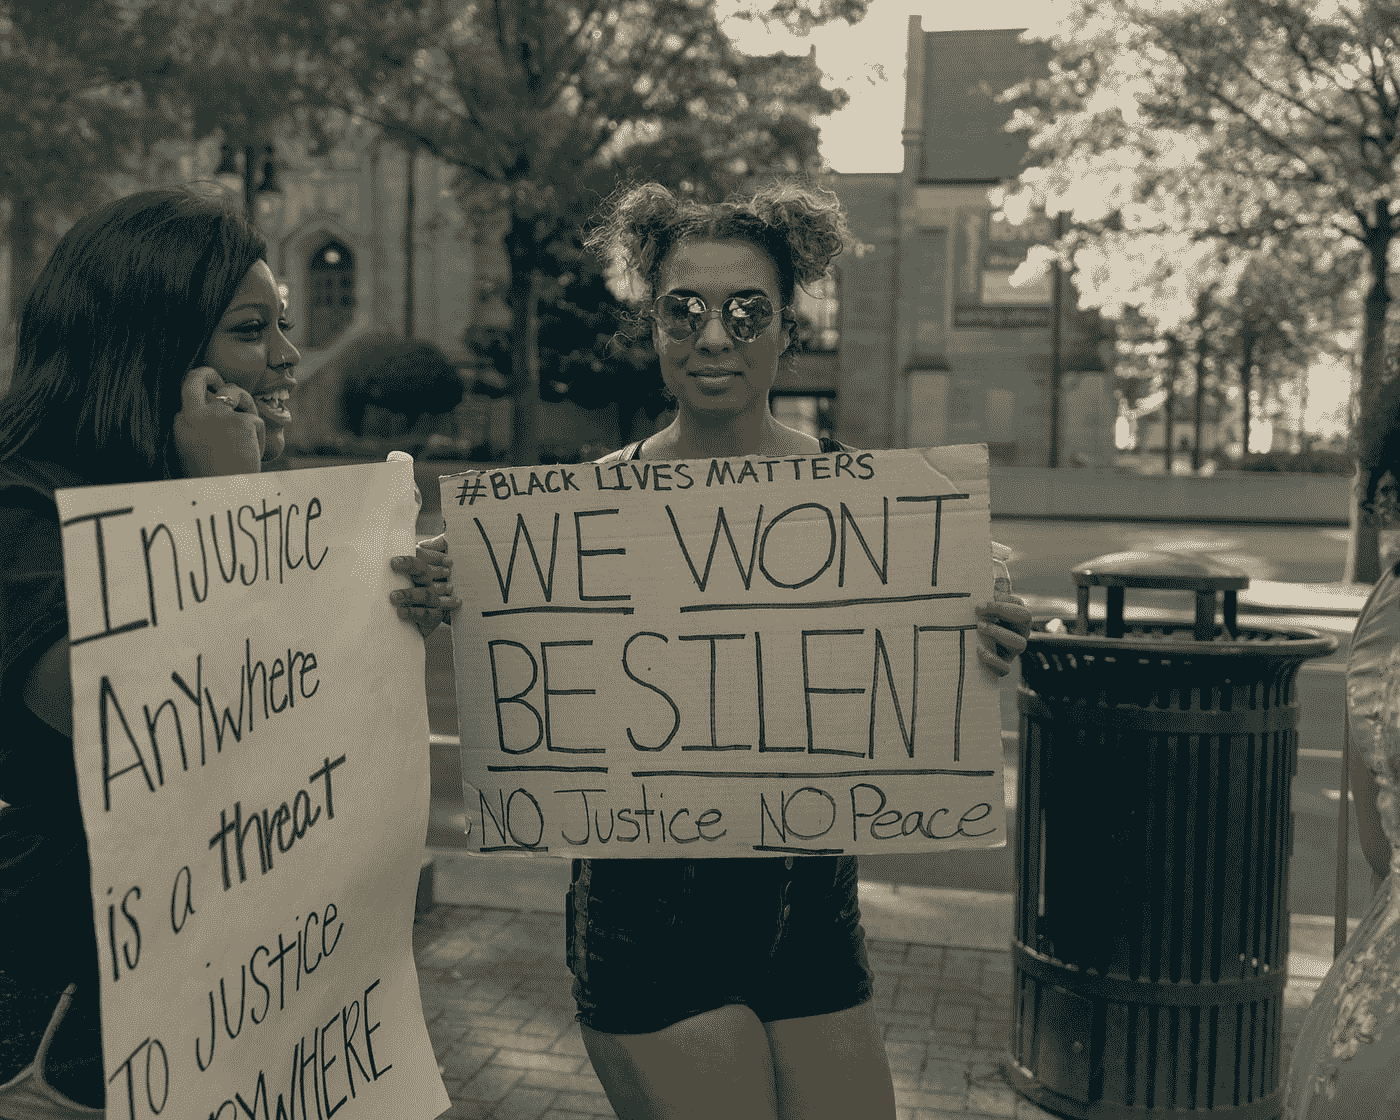 Injustice
AnYwhere
is a threat
TO justice
RYWHERE
#BLACK LIVES MATTERS
WE WONT
BE SILENT
NO Justice NO Peace